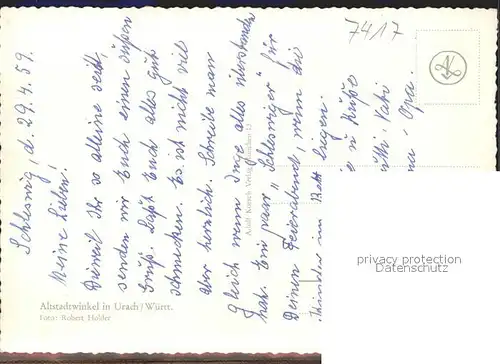 Schleswig, d. 29.4.59.
Meine Lieben!
Dieweil Ihr so alleine seid,
senden wir Euch einen süßen
Gruß. Laßt Euch alles gut
schmecken. Es ist nicht viel
aber herzlich. Schreibe man
gleich wenn Inge alles überstanden
hat. Ein paar "Schleswiger" für
Deinen Feierabend, wenn die
Kinder im Bett liegen.
u. Küße
Vati
Opa.
7417
Altstadtwinkel in Urach/Württ.
Foto: Robert Holder
Adolf Korsch Verlag, München 13
privacy protection
AnsichtskartenVersand.com